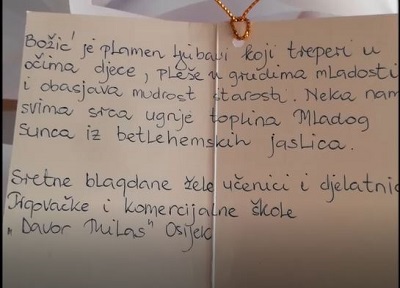 Božić je plamen ljubavi koji treperi u
očima djece, pleše u grudima mladosti
i obasjava mudrost starosti. Neka nam
svima srca ugrije toplina Mladog
Sunca iz betlehemskih jaslica.
Sretne blagdane žele učenici i djelatnic
Trgovačke i komercijalne škole
"Davor Milas" Osijek